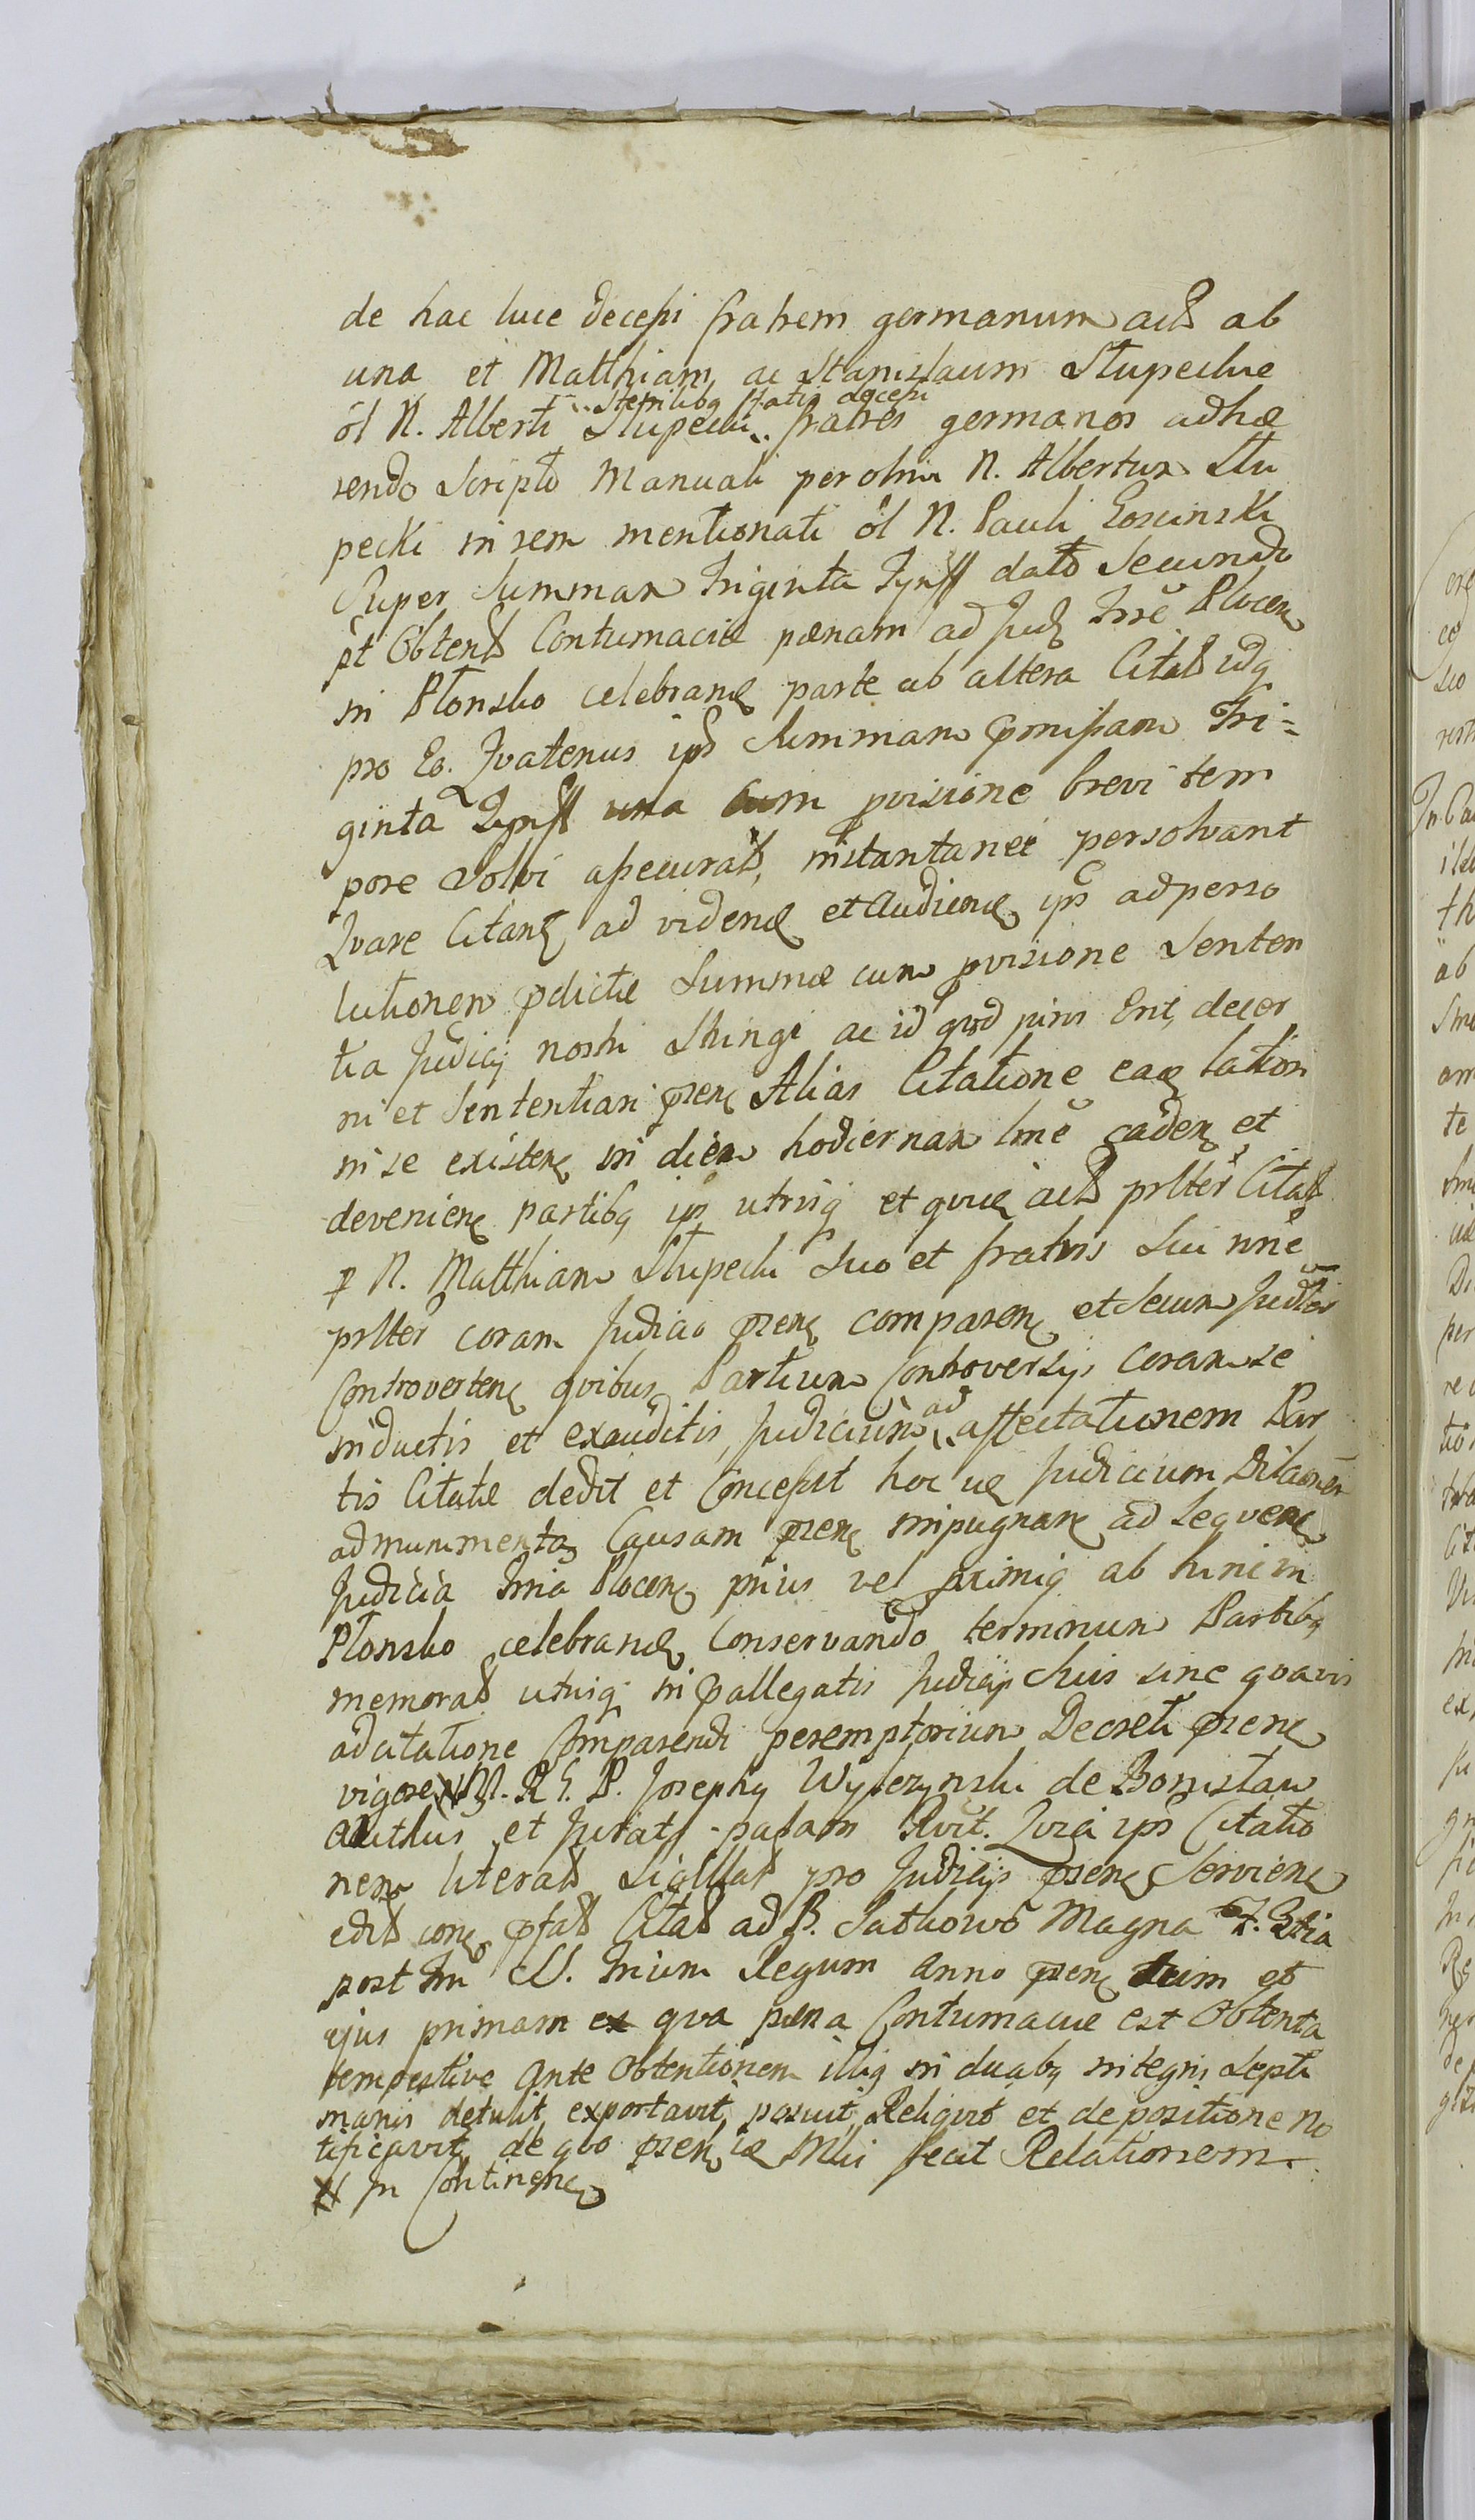 de hac luce decessi fratrem germanum acts ab
una et Matthiam ac Stanislaum Słupeckie
sterilibq fatis decessi
ol N. Alberti Słupecki fratres germanos adhæ
rendo Scripto Manuali per olim N. Albertum Słu
pecki in rem mentionati ol N. Pauli Goscinski
Super Summam Triginta Tynff dato Secundo
pt Obtents Contumaciæ pœnam ad Judz Trrē Plocen
in Płonsko celebrand parte ab altera Citats idq
pro Eo. Qvatenus ips Summam pmissam Tri=
ginta Tynff una cum pvisione brevi tem
pore Solvi assecurats, instantanee persolvant
Qvare Citant ad vidend et Audiend ips ad perso
lutionem pdictæ Summæ cum pvisione Senten
tia Judicij nostri Stringi ac id qvod juris Erit, decer
ni et Sententiari pren Alias Citatione eaq latior
in se existen in diem hodiernam lmē caden et
devenien partibq ips utrisq et qvid acts prlter Citats
p N. Matthiam Słupecki Suo et fratris Sui nrie
prlter coram Judicio pren comparen et Secum Judlter
Controverten qvibus Partium Controversijs coram se
inductis et exauditis, Judicium ad affectationem Par
tis Citatæ dedit et Concessit hoc ud Judicium Dilaoñem
ad munimenta Causam pren impugnan ad Seqven
Judicia Trria Plocen prius vel primiq ab hinc in
Płonsko celebrand Conservando terminum Partibq
memorats utrisq in pallegatis Judicijs huis sine qvavis
adcitatione Comparendi peremptorium Decreti pren
vigore M. R. G. P. Josephq Wyleżynski de Bonisław
Aulhus et Jurats palam Rvit. Qvia ips Citatio
nem literats Sigillats pro Judicijs pren Servien
edits con pfats Citats ad B. Sułkowo Magna F. 3tia
post fm SS. Trium Regum anno pren tum et
ejus primam ex qva pæna Contumaciæ est Obtenta
tempestive ante Obtentionem illiq in duabq integris Septi
manis detulit, exportavit, posuit, Reliqvit et de positione no
tificavit, de qvo pren id Mhi fecit Relationem.
In Continen